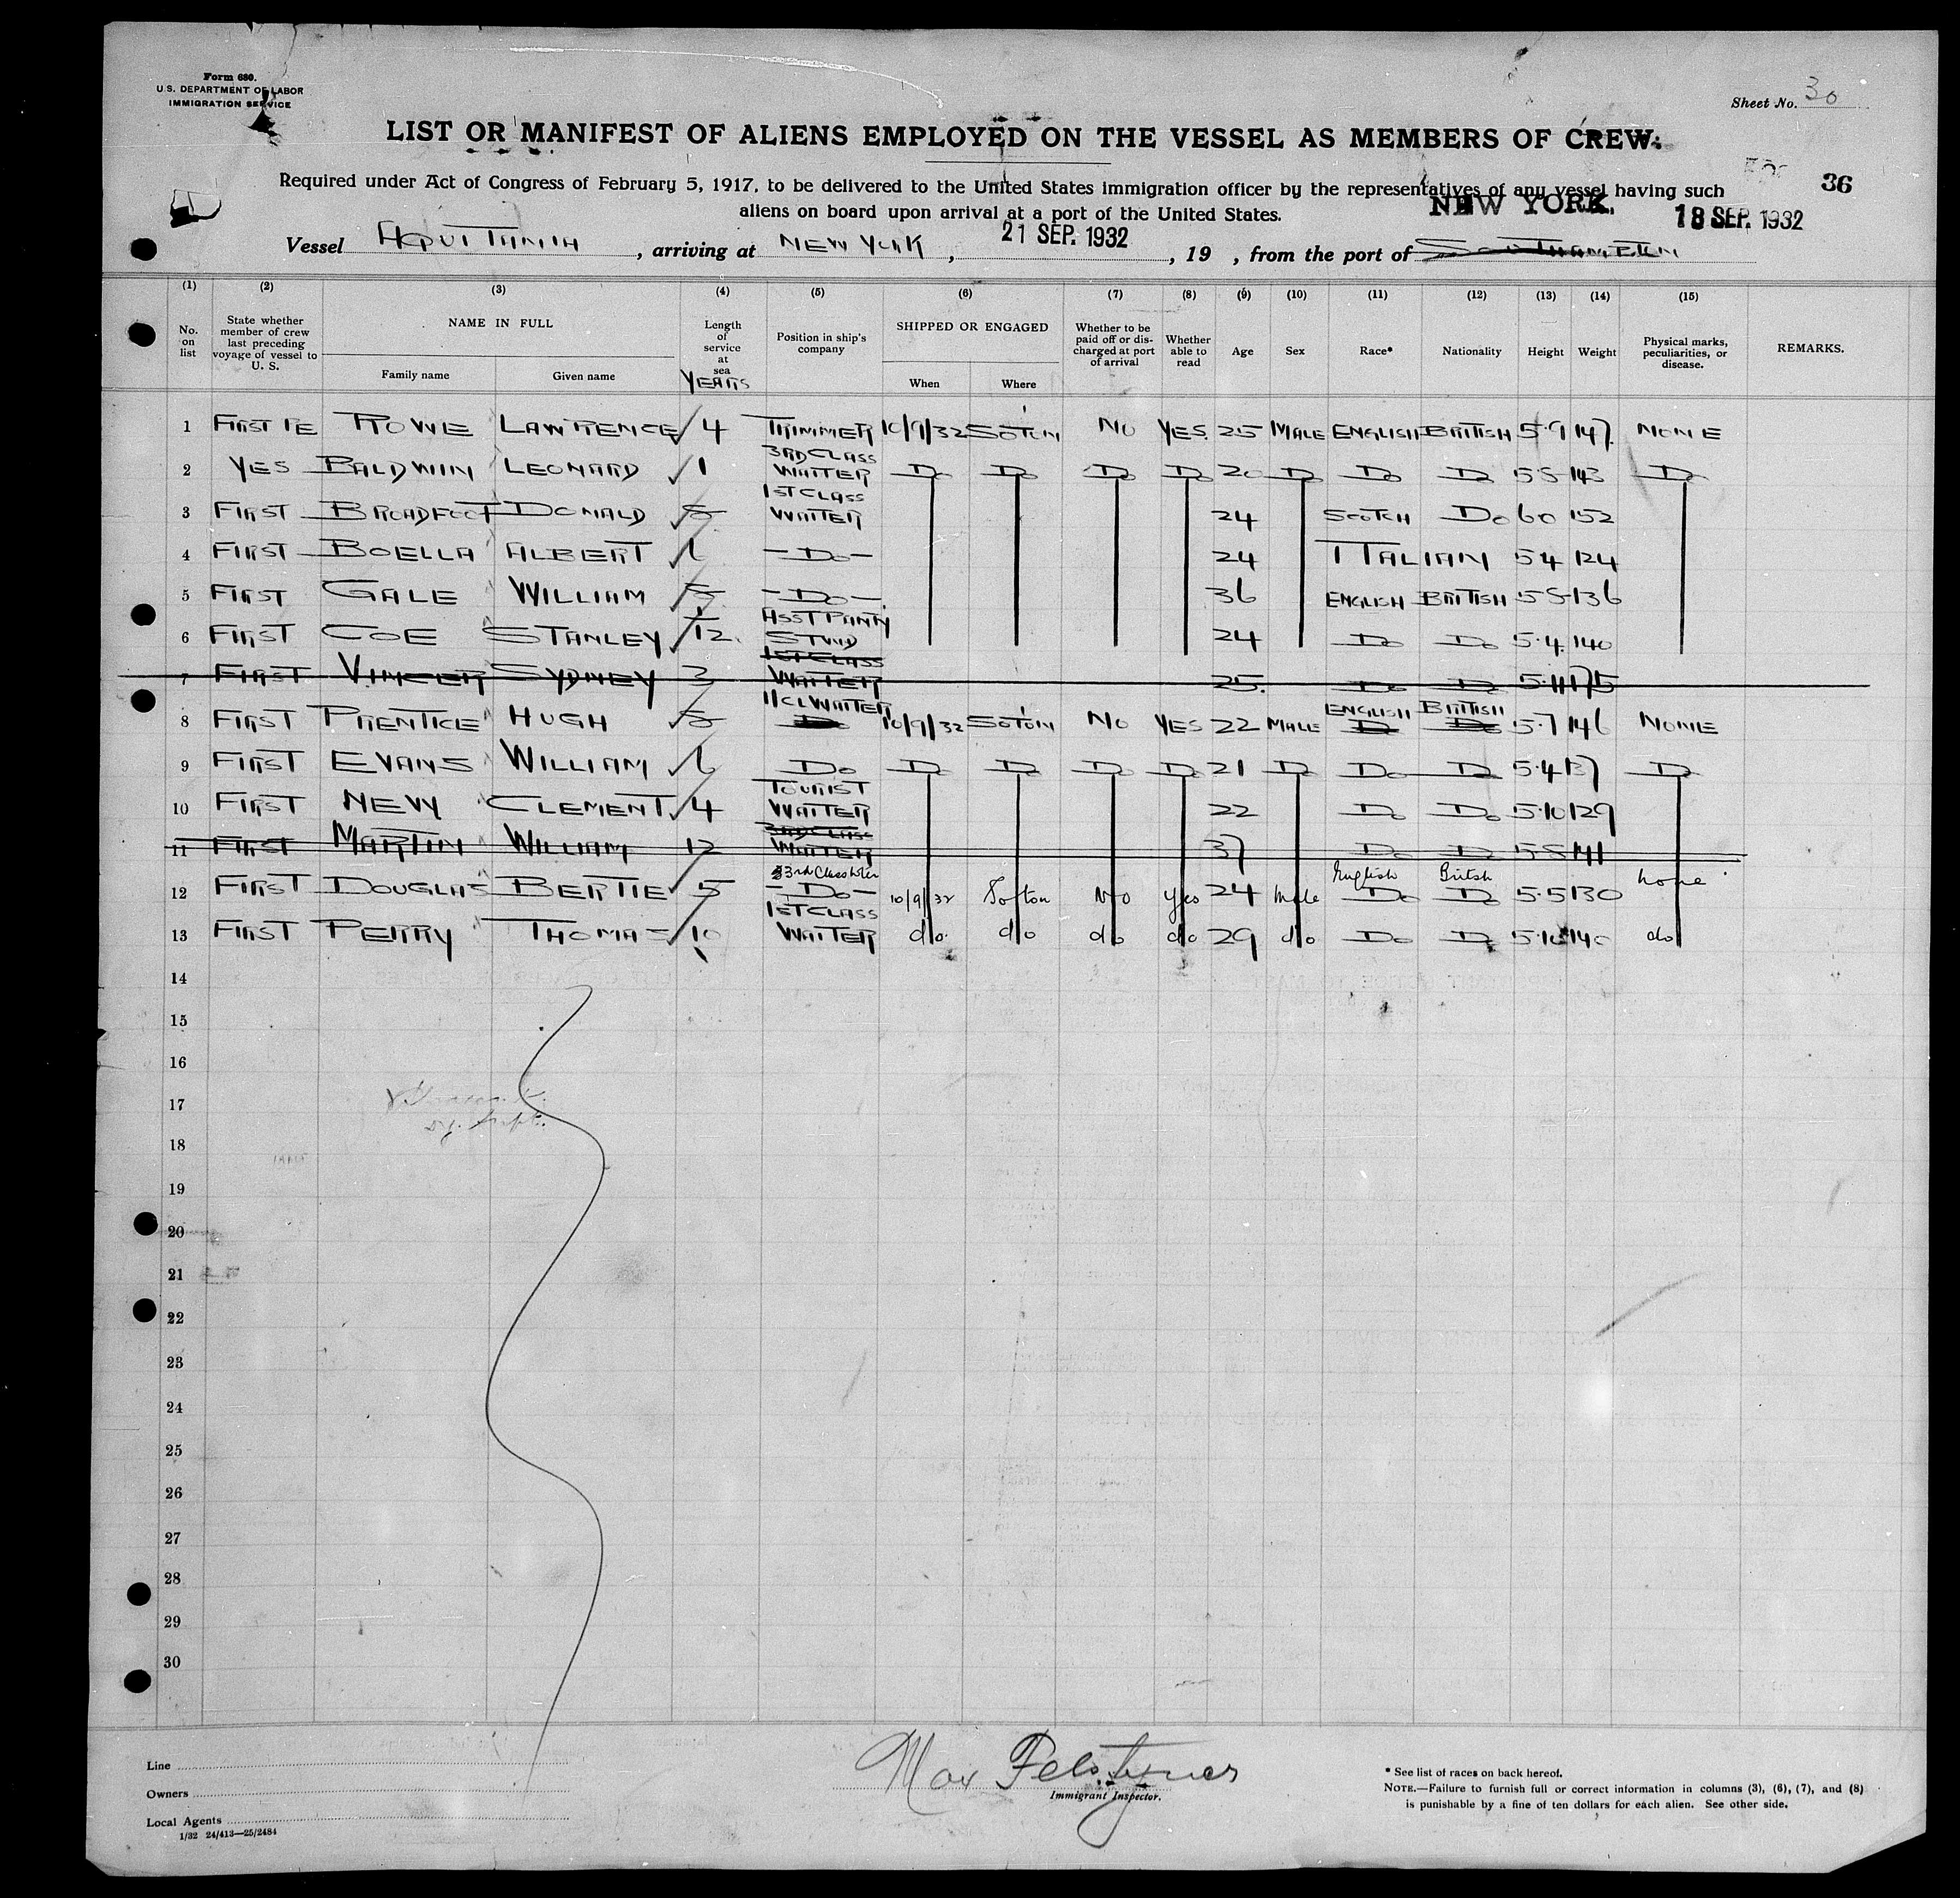 Form 680.
U.S. DEPARTMENT OF LABOR
IMMIGRATION SERVICE
Sheet No. 30
LIST OR MANIFEST OF ALIENS EMPLOYED ON THE VESSEL AS MEMBERS OF CREW.
Required under Act of Congress of February 5, 1917, to be delivered to the United States immigration officer by the representatives of any vessel having such
36
aliens on board upon arrival at a port of the United States.
NEW YORK. 18 SEP. 1932
21 SEP. 1932
Vessel AQUITANIA, arriving at NEW YORK, , 19 , from the port of SOUTHAMPTON
(1) (2) (3) (4) (5) (6) (7) (8) (9) (10) (11) (12) (13) (14) (15)
No. on list State whether member of crew last preceding voyage of vessel to U. S. NAME IN FULL Family name Given name Length of service at sea YEARS Position in ship's company SHIPPED OR ENGAGED When Where Whether to be paid off or discharged at port of arrival Whether able to read Age Sex Race* Nationality Height Weight Physical marks, peculiarities, or disease. REMARKS.
1 FIRST RE ROWE LAWRENCE 4 TRIMMER 10/9/32 SOTON NO YES. 25 MALE ENGLISH BRITISH 5·9 147. NONE
2 YES BALDWIN LEONARD 1 3RD CLASS WAITER Do Do Do Do 20 Do Do Do 5·5 143 Do
3 FIRST BROADFOOT DONALD 5 1ST CLASS WAITER 24 SCOTCH Do 60 152
4 FIRST BOELLA ALBERT 6 -Do- 24 ITALIAN 54 124
5 FIRST GALE WILLIAM 5 -Do- 36 ENGLISH BRITISH 5·5 136
6 FIRST COE STANLEY 1/12 ASST PANTRY STWD 24 Do Do 5·4. 140
7 FIRST VINCER SYDNEY 3 1ST CLASS WAITER 25. Do Do 5·11 175
8 FIRST PRENTICE HUGH 5 1/CL WAITER Do 10/9/32 SOTON NO YES 22 MALE ENGLISH BRITISH Do Do 5·7 146 NONE
9 FIRST EVANS WILLIAM 6 Do Do Do Do Do 21 Do Do Do 5·4 137 Do
10 FIRST NEVY CLEMENT 4 TOURIST WAITER 22 Do Do 5·10 129
11 FIRST MARTIN WILLIAM 12 3RD CLASS WAITER 37 Do Do 5·8 141
12 FIRST DOUGLAS BERTIE 5 3rd Class Wter -Do- 10/9/32 Soton No yes 24 Male English Do British Do 5·5 130 none
13 FIRST PERRY THOMAS 10 1ST CLASS WAITER do do do do 29 do Do Do 5·10 140 do
14
15
16
17
18
19
20
21
22
23
24
25
26
27
28
29
30
Line
Owners
Local Agents
1/32 24/413—25/2484
Immigrant Inspector.
* See list of races on back hereof.
NOTE.—Failure to furnish full or correct information in columns (3), (6), (7), and (8)
is punishable by a fine of ten dollars for each alien. See other side.